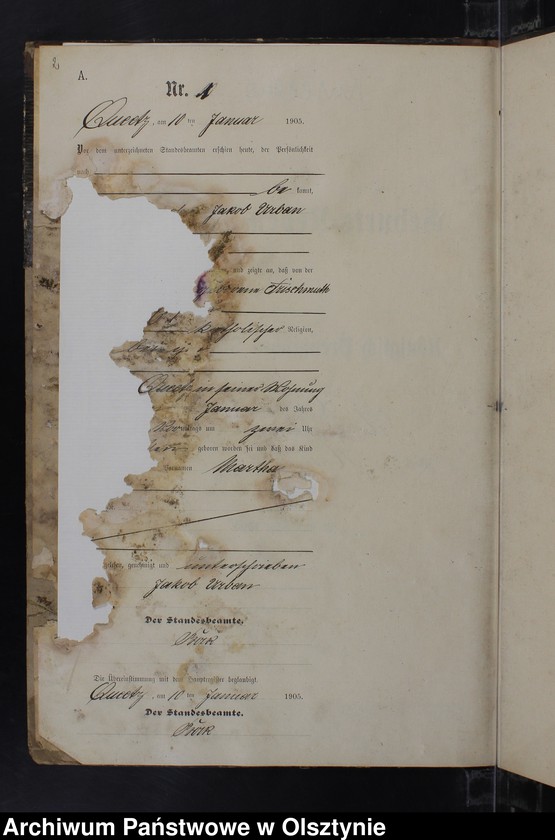 2
A.
Nr. 1
Queetz, am 10 ten Januar 1905.
Vor dem unterzeichneten Standesbeamten erschien heute, der Persönlichkeit
nach
be kannt,
Jakob Urban
und zeigte an, daß von der
geborene
katholischer Religion,
Queetz in seiner Wohnung
Januar des Jahres
Vormittags um zwei Uhr
geboren worden sei und daß das Kind
Vornamen Martha
genehmigt und unterschrieben
Jakob Urban
Der Standesbeamte.
Die Übereinstimmung mit dem Hauptregister beglaubigt
Queetz, am 10 ten Januar 1905.
Der Standesbeamte.
Archiwum Państwowe w Olsztynie